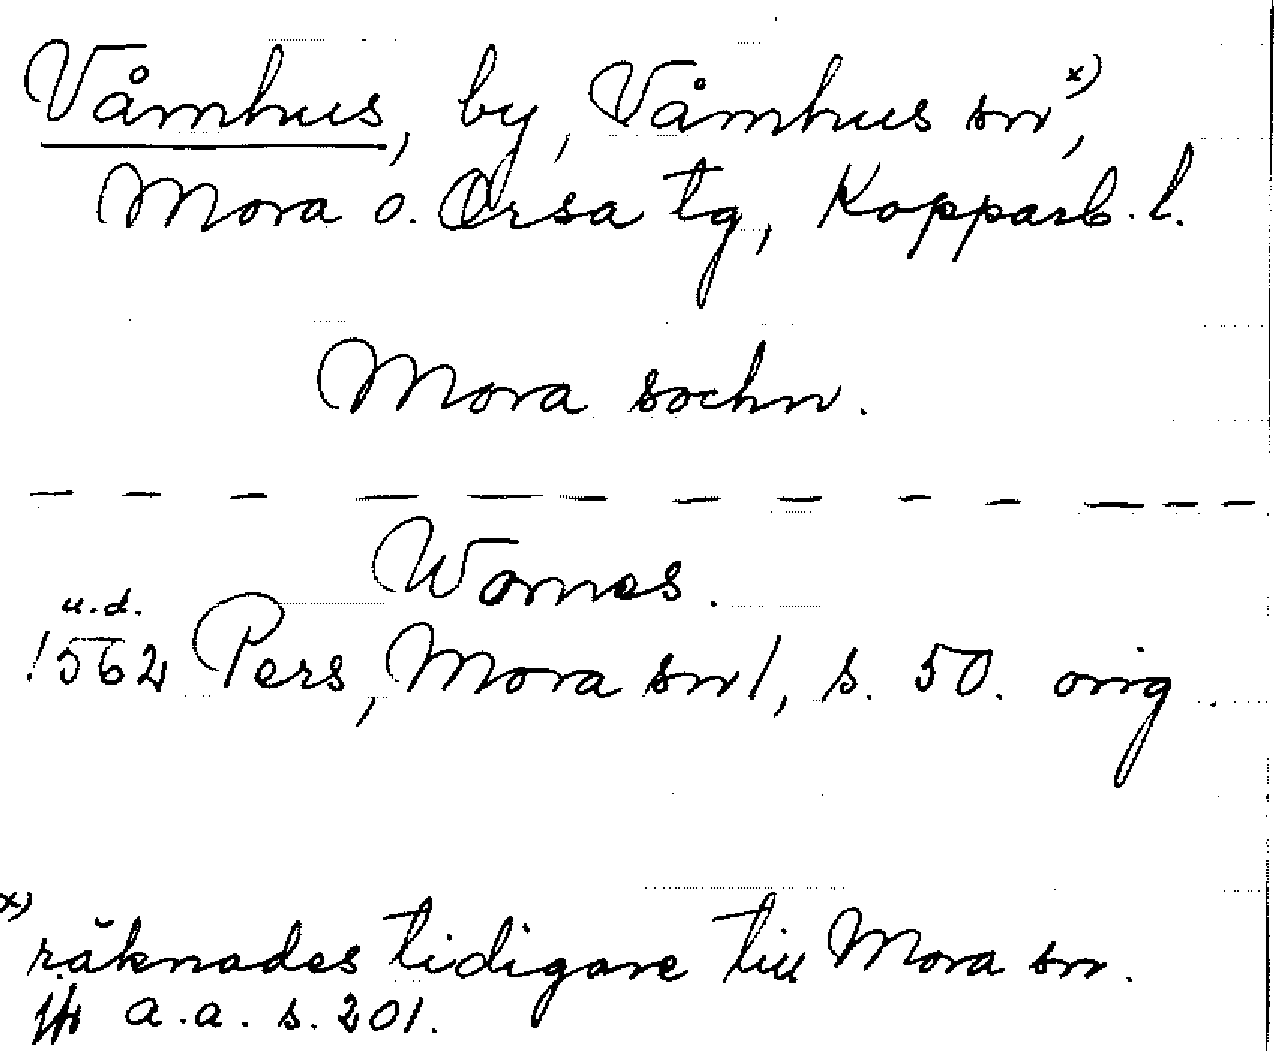 Våmhus, by, Våmhus sn x),
Mora o. Orsa tg, Kopparb. l.
Mora sochn.
— — — — — — — — — — — — —
Womes.
u.d.
1562 Pers, Mora sn/, s. 50. orig.
x)
räknades tidigare till Mora sn.
jfr a.a. s. 201.